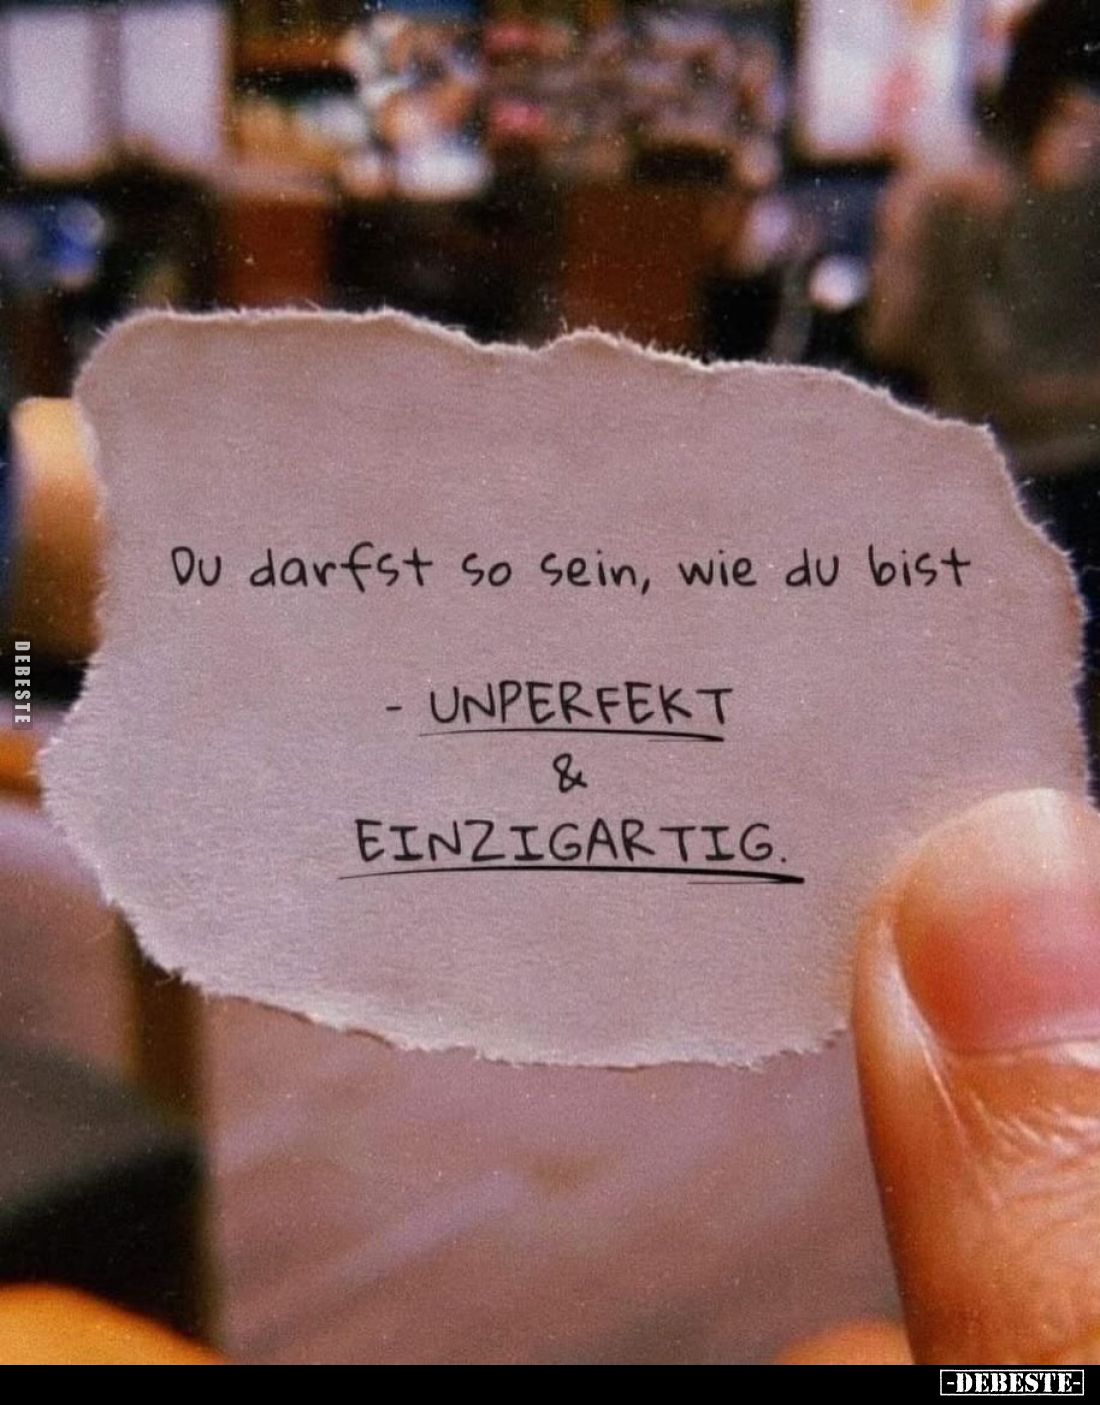 Du darfst so sein, wie du bist
- UNPERFEKT
&
EINZIGARTIG.
DEBESTE
-DEBESTE-